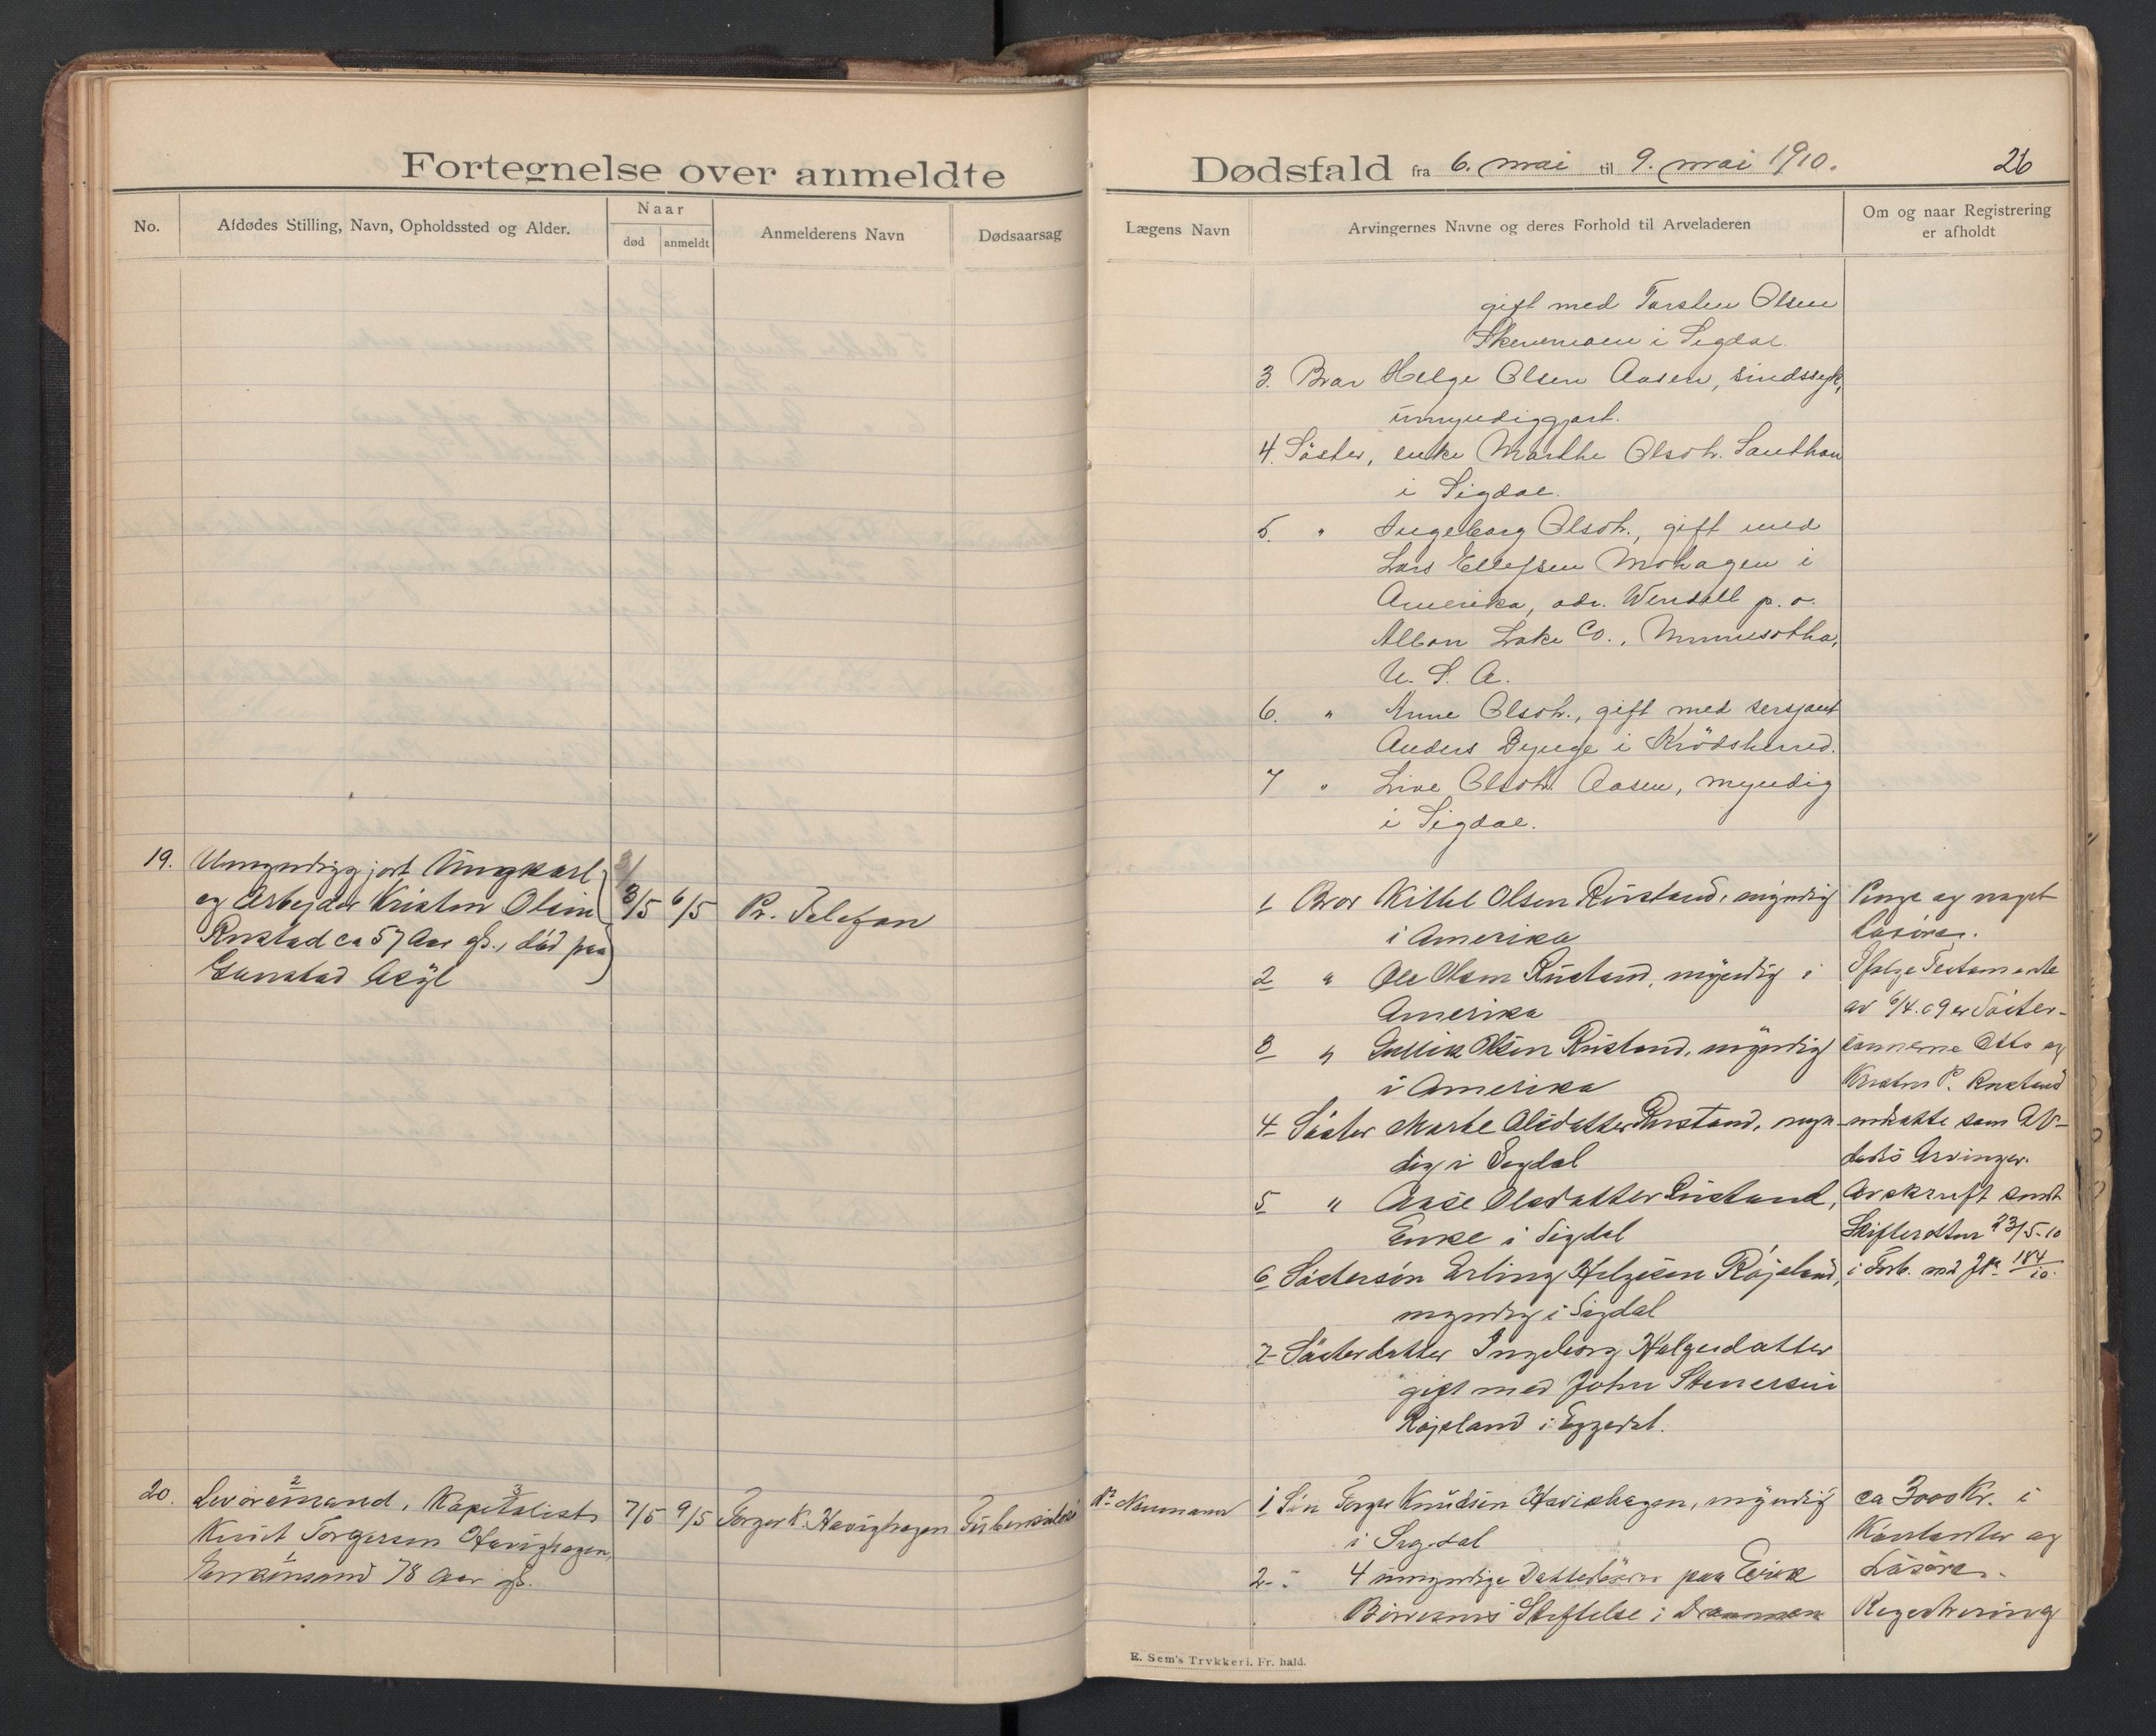 Fortegnelse over anmeldte
Dødsfald fra 6. mai til 9. mai 1910.
26
No.
Afdødes Stilling, Navn, Opholdssted og Alder.
Naar
død
anmeldt
Anmelderens Navn
Dødsaarsag
Lægens Navn
Arvingernes Navne og deres Forhold til Arveladeren
Om og naar Registrering
er afholdt
gift med Torsten Olsen
i Sigdal.
3. Bror Helge Olsen Aasen, sindssyk,
umyndiggjort.
4. Söster, enke Marthe Olsdtr.
i Sigdal.
5. " Ingeborg Olsdtr., gift med
Lars Ellefsen Mohagen i
Amerika, adr. Wendall p. o.
Lake Co., Minnesotha,
U. S. A.
6. " Anne Olsdtr., gift med sersjant
Anders Bynge i Krödsherred.
7 " Live Olsdtr. Aasen, myndig
i Sigdal.
19.
Umyndiggjort Ungkarl
og Arbejder Kristen Olsen
Rustad ca 57 Aar gl., död paa
Asyl
3/5
6/5
Pr. Telefon
1 Bror Kittel Olsen Rustand, myndig
i Amerika
2 " Ole Olsen Rustand, myndig i
Amerika
3 " Gullik Olsen Rustand, myndig
i Amerika
4 Söster Marte Olsdatter Rustand, myn-
dig i Sigdal
5 " Aase Olsdatter Rustand,
Enke i Sigdal
6 Söstersön Erling Helgesen Röjsland,
myndig i Sigdal
7 Sösterdatter Ingeborg Helgesdatter
gift med John Stenersen
Röjsland i Eggedal.
Penge og noget
Lösöre.
Ifölge Testamente
av 6/4.09 er Söster-
sönnerne Otto og
Kristen P. Rustand
indsatte som Av-
dødes Arvinger.
Avskrift sendt
Skifteretten 23/5-10
i Forb. med JNr. 184/10.
20.
Levöremand, Kapitalist
2
3
Knut Torgersen Havighagen,
1
Enkemand 78 Aar gl.
7/5
9/5
Torger K. Havighagen
Tuberkulose
Neumann
1 Sön Torger Knudsen Havighagen, myndig
i Sigdal
2 - 4 umyndige Datterbörn paa Erik
Börresens Stiftelse i Drammen
ca 3000 Kr. i
Kontanter og
Lösöre.
Registrering
E. Sem's Trykkeri, Fr. hald.